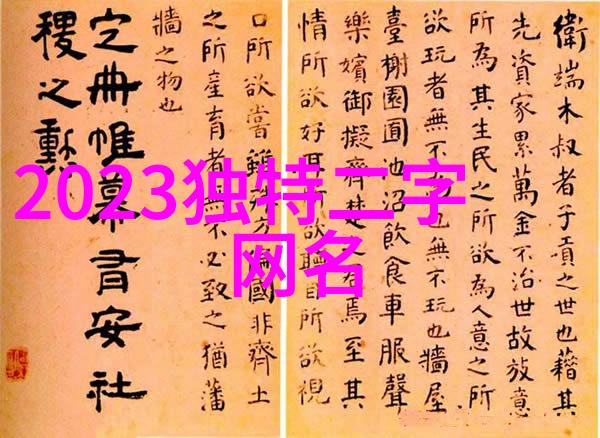 2023独特二字
网名
衛端木叔者子貢之世也藉其
先資家累萬金不治世故放意
所為其生民之所欲為人意之所
欲玩者無不也無不玩也牆屋
臺榭園囿池沼飲食車服聲
樂嬪御擬齊楚之焉至其
情所欲好耳所欲聽目所欲視
口所欲嘗雖殊方偏國非齊土
之所產育者無不必致之猶藩
牆之物也
定冊帷幕有安社
稷之勳